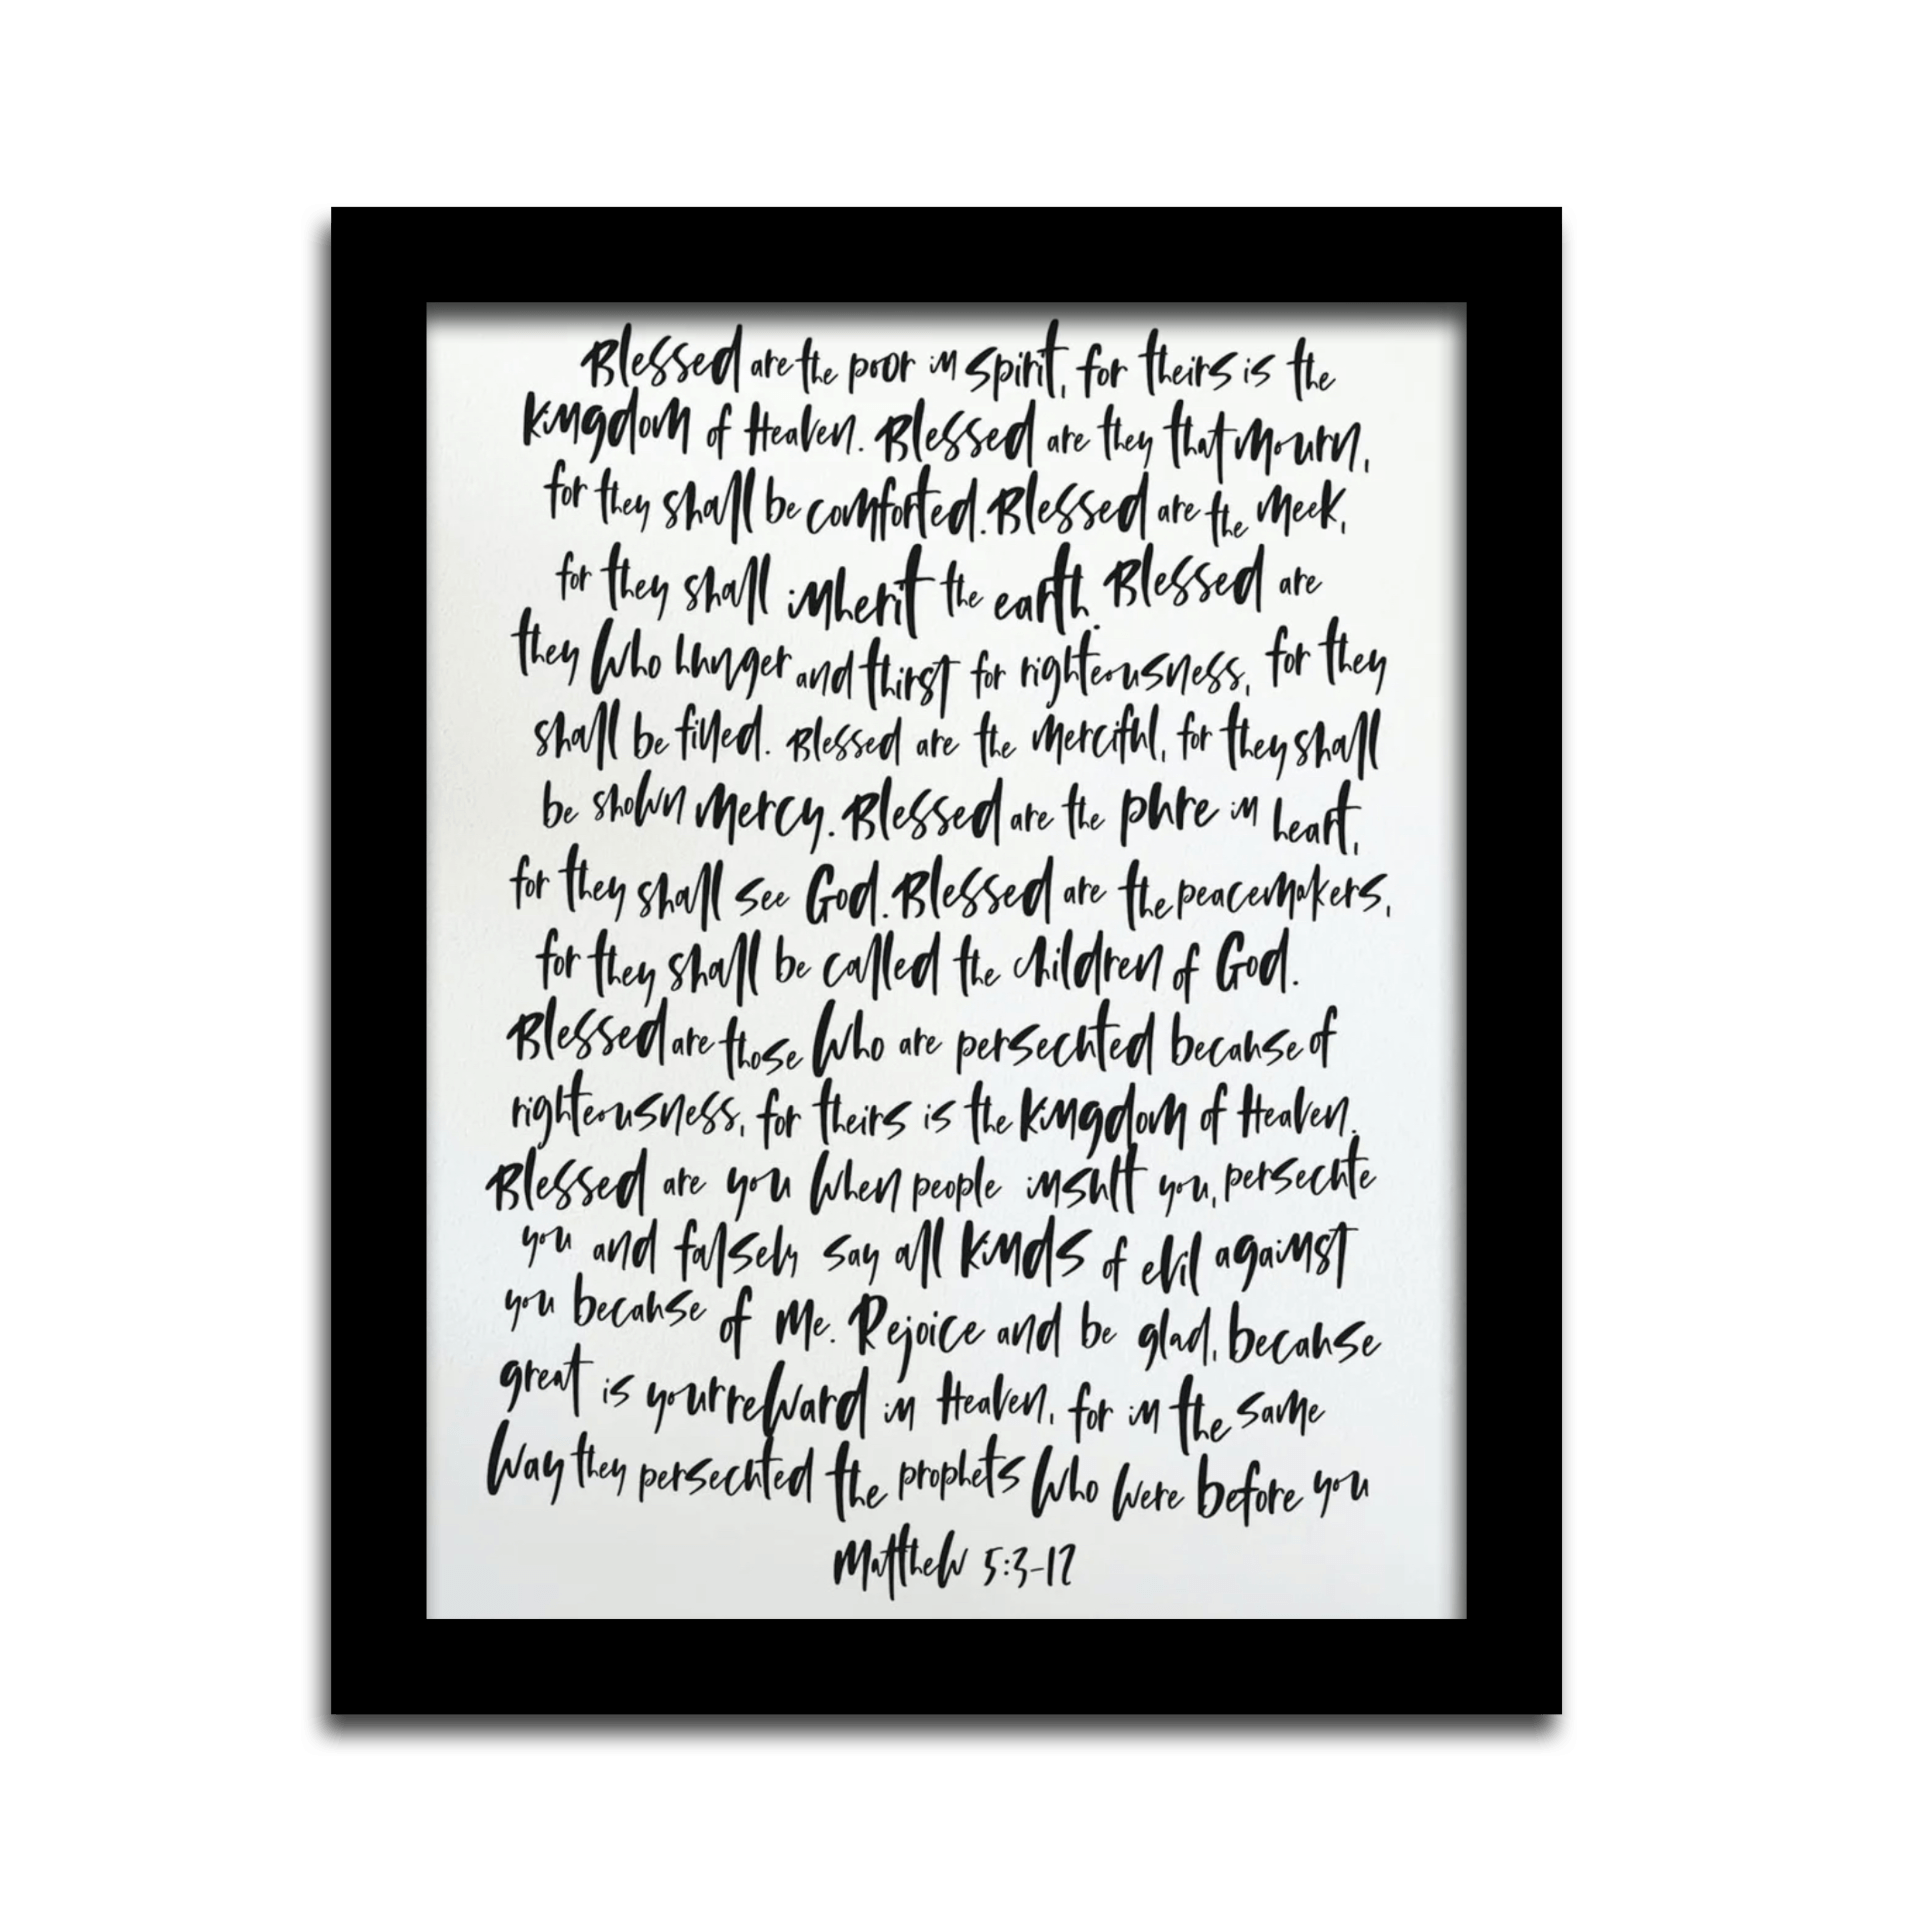 Blessed are the poor in spirit, for theirs is the
kingdom of Heaven. Blessed are they that mourn,
for they shall be comforted. Blessed are the meek,
for they shall inherit the earth. Blessed are
they who hunger and thirst for righteousness, for they
shall be filled. Blessed are the merciful, for they shall
be shown mercy. Blessed are the pure in heart,
for they shall see God. Blessed are the peacemakers,
for they shall be called the children of God.
Blessed are those who are persecuted because of
righteousness, for theirs is the kingdom of Heaven.
Blessed are you when people insult you, persecute
you and falsely say all kinds of evil against
you because of Me. Rejoice and be glad, because
great is your reward in Heaven, for in the same
way they persecuted the prophets who were before you
Matthew 5:3-12